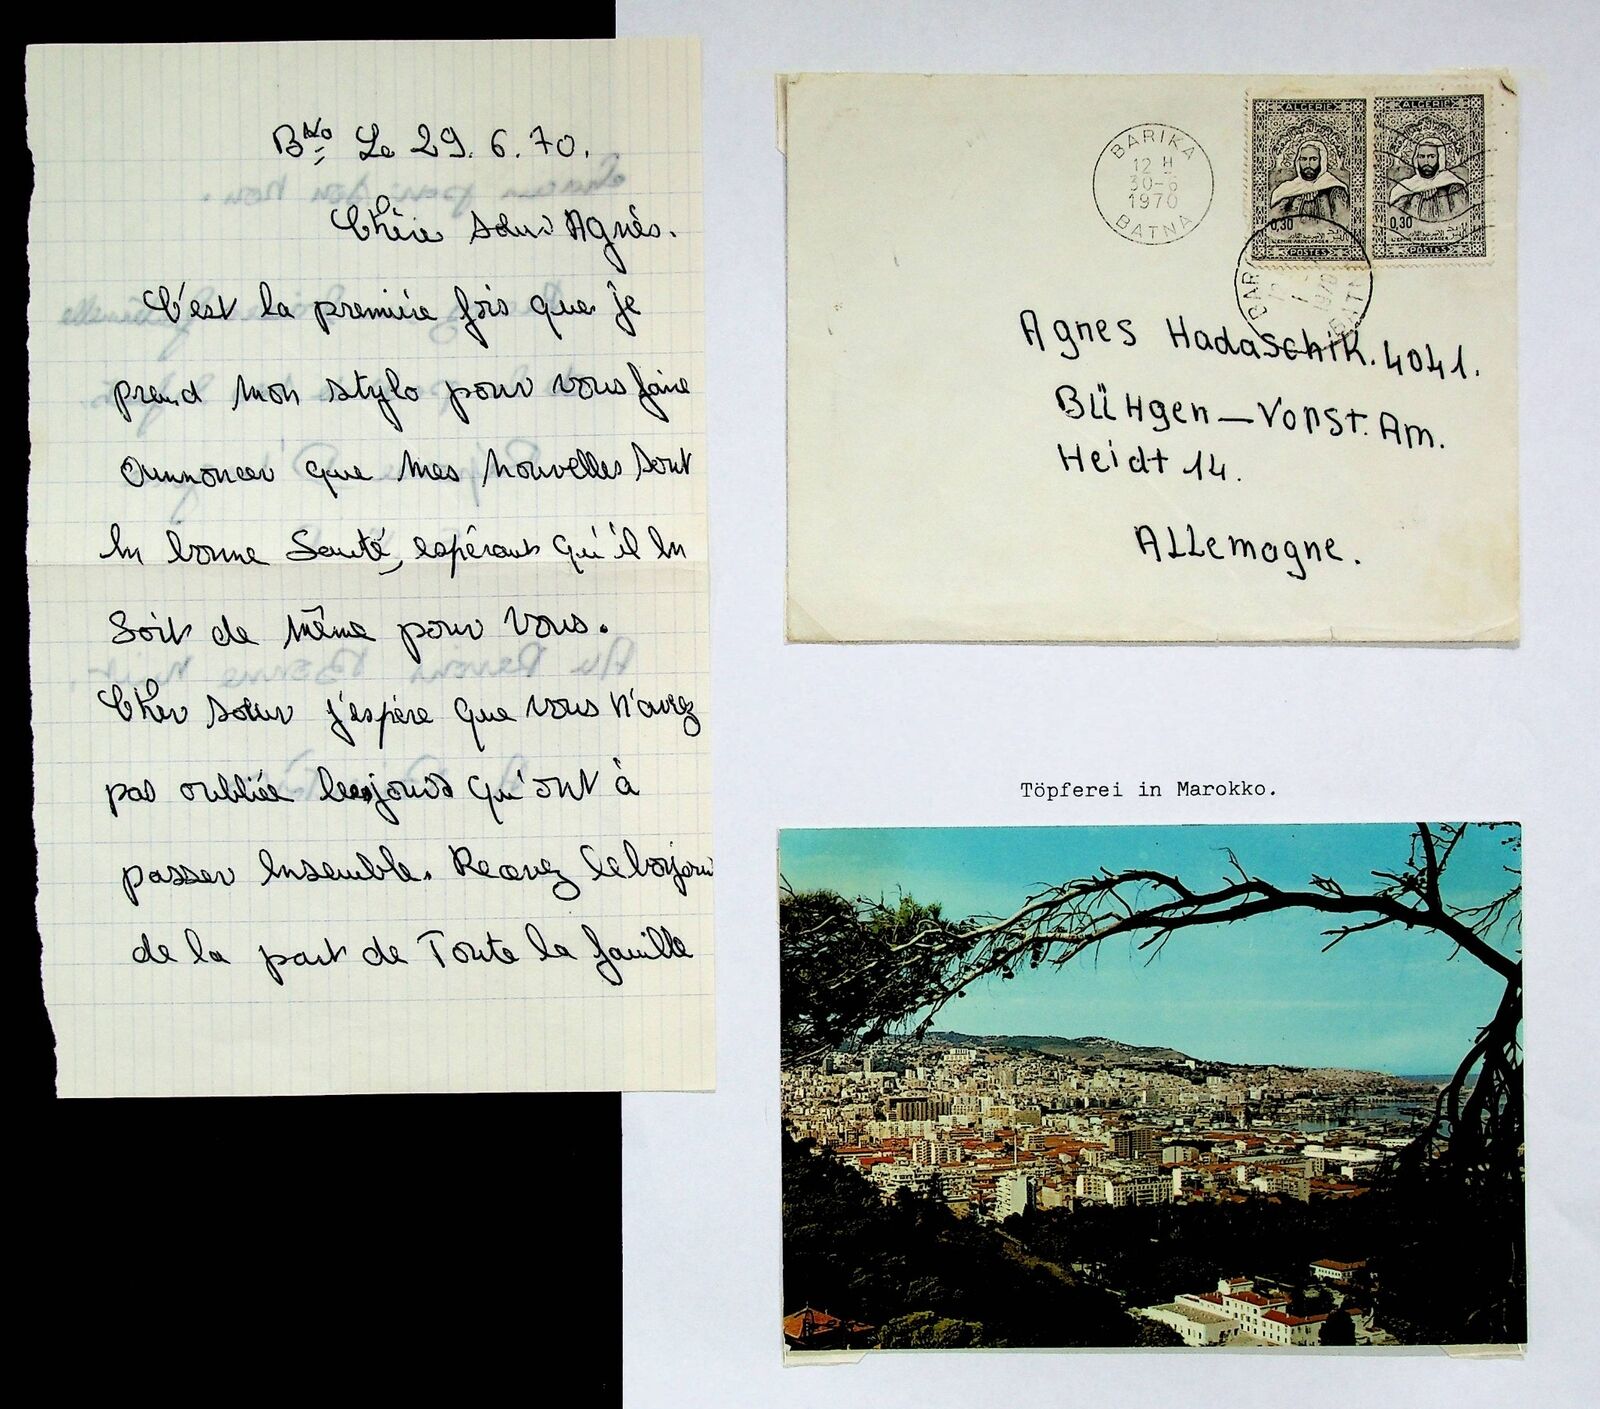 Bno Le 29.6.70.
Chère Sœur Agnés.
C'est la première fois que je
prend mon stylo pour vous faire
Annoncer que mes nouvelles sont
en bonne Santé, espérant qu'il en
soit de même pour vous.
Cher sœur j'espère que vous n'avez
pas oubliée les jours qu'ont à
passer ensemble. Recevez le bonjour
de la part de Toute la famille
ALGERIE
0,30
L'EMIR ABDELKADER
POSTES
ALGERIE
0,30
L'EMIR ABDELKADER
POSTES
BARIKA
12 H
30-6
1970
BATNA
Agnes Hadaschik. 4041.
BÜHgen—Vorst. Am.
Heidt 14.
ALLemagne.
Töpferei in Marokko.